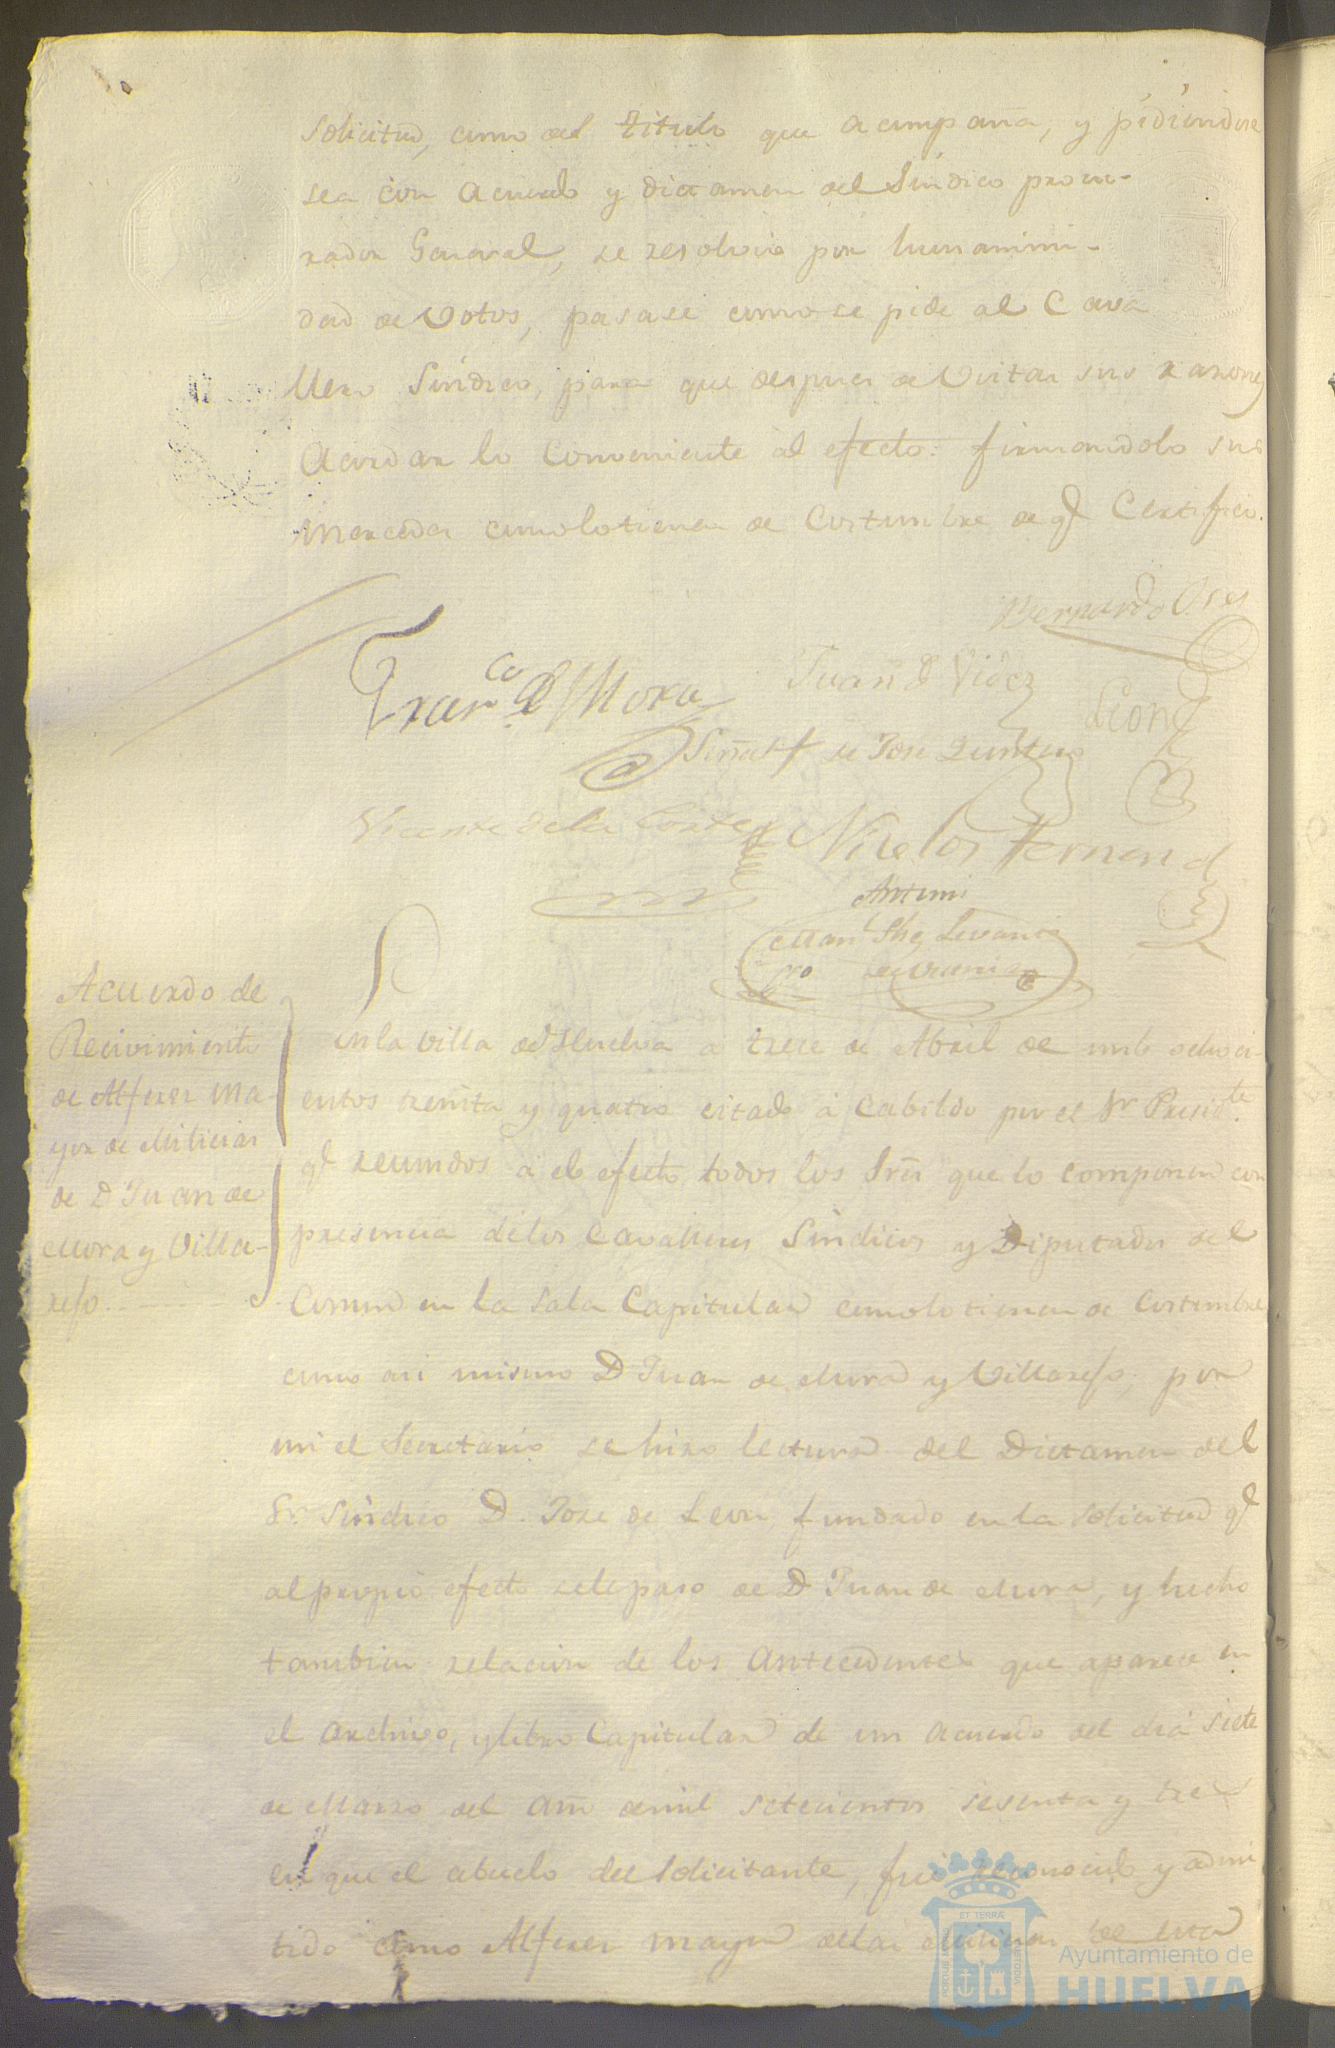 Solicitud, como del titulo que acompaña, y pidiendose
sea con acuerdo y dictamen del Sindico procu-
rador General, se resolvio por hunanimi-
dad de Votos, pasase como se pide al Cava
llero Sindico, para que despues de Vistas sus razones
Acordar lo Conveniente al efecto: firmandolo sus
Mercedes como lo tienen de Costumbre de q.e Certifico.
Bernardo
Fran.co D Mora
Juan D Vides
Leon
Señal + de Jose Quintero
Vicente de la Corte
Nicolas Fernand
Antemi
Man.l
Acuerdo de
Recivimiento
de Alferez Ma-
yor de Milicias
de D Juan de
Mora y Villa-
refo
En la villa de Huelva a trece de Abril de mil ochoci-
entos treinta y quatro citado a Cabildo por el Sr Presid.te
q.e reunidos a el efecto todos los Sres que lo componen con
presencia de los Cavalleros Sindicos y Diputados del
Comun en la Sala Capitular como lo tienen de Costumbre
como asi mismo D Juan de Mora y Villarefo, por
mi el Secretario se hizo lectura del Dictamen del
Sr. Sindico D. Jose de Leon, fundado en la solicitud q.e
al propio efecto se le paso de D Juan de Mora, y hecho
tambien relacion de los Antecedentes que aparece en
el archivo, y libro Capitular de un acuerdo del dia siete
de Marzo del Año de mil setecientos sesenta y tres
en que el abuelo del solicitante, fue reconocido y admi
tido como Alferez mayor de las Milicias de esta
ET TERRÆ
Ayuntamiento de
HUELVA